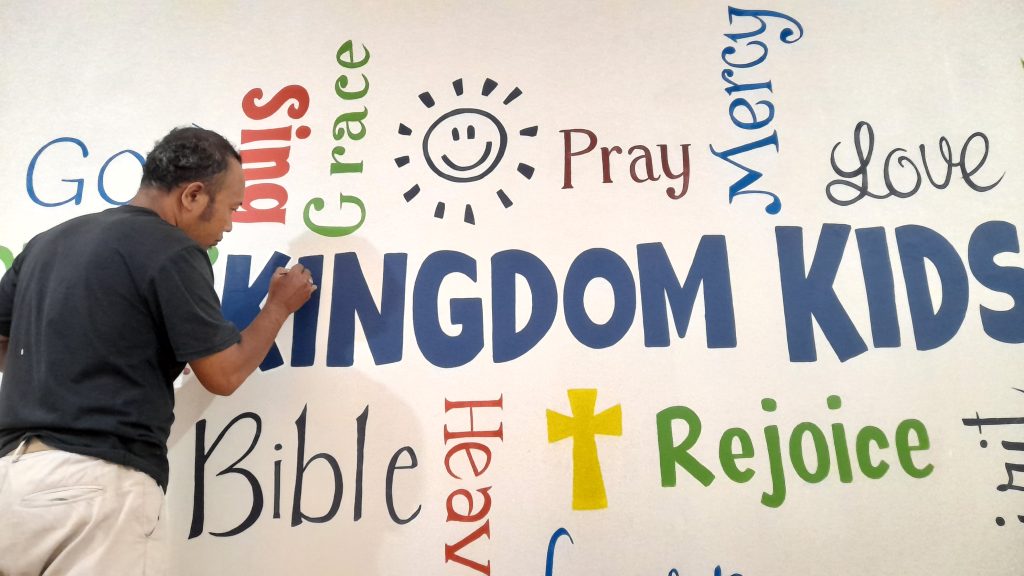 Sing
Grace
Mercy
Pray
Love
KINGDOM KIDS
Bible
Heav
Rejoice